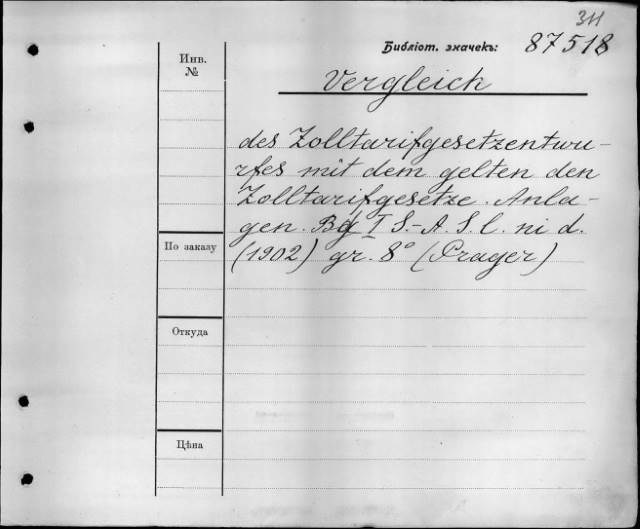 311
Библіот. значекъ: 87518
Инв.
№
Vergleich
des Zolltarifgesetzentwu-
rfes mit dem gelten den
Zolltarifgesetze. Anla-
gen. Bd I S.-A. S. l. ni d.
(1902) gr. 8° (Prager)
По заказу
Откуда
Цѣна